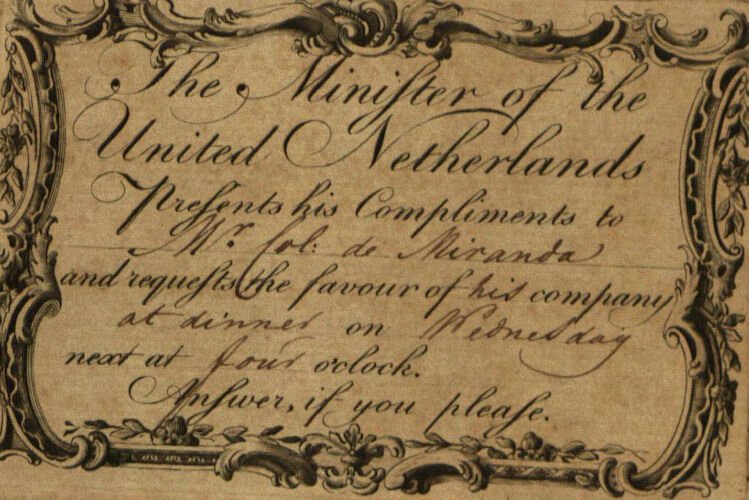 The Miniſter of the
United Netherlands
Preſents his Compliments to
Mr. Col: de Miranda
and requeſts the favour of his company
at dinner on Wednesday
next at four o'clock.
Anſwer, if you pleaſe.